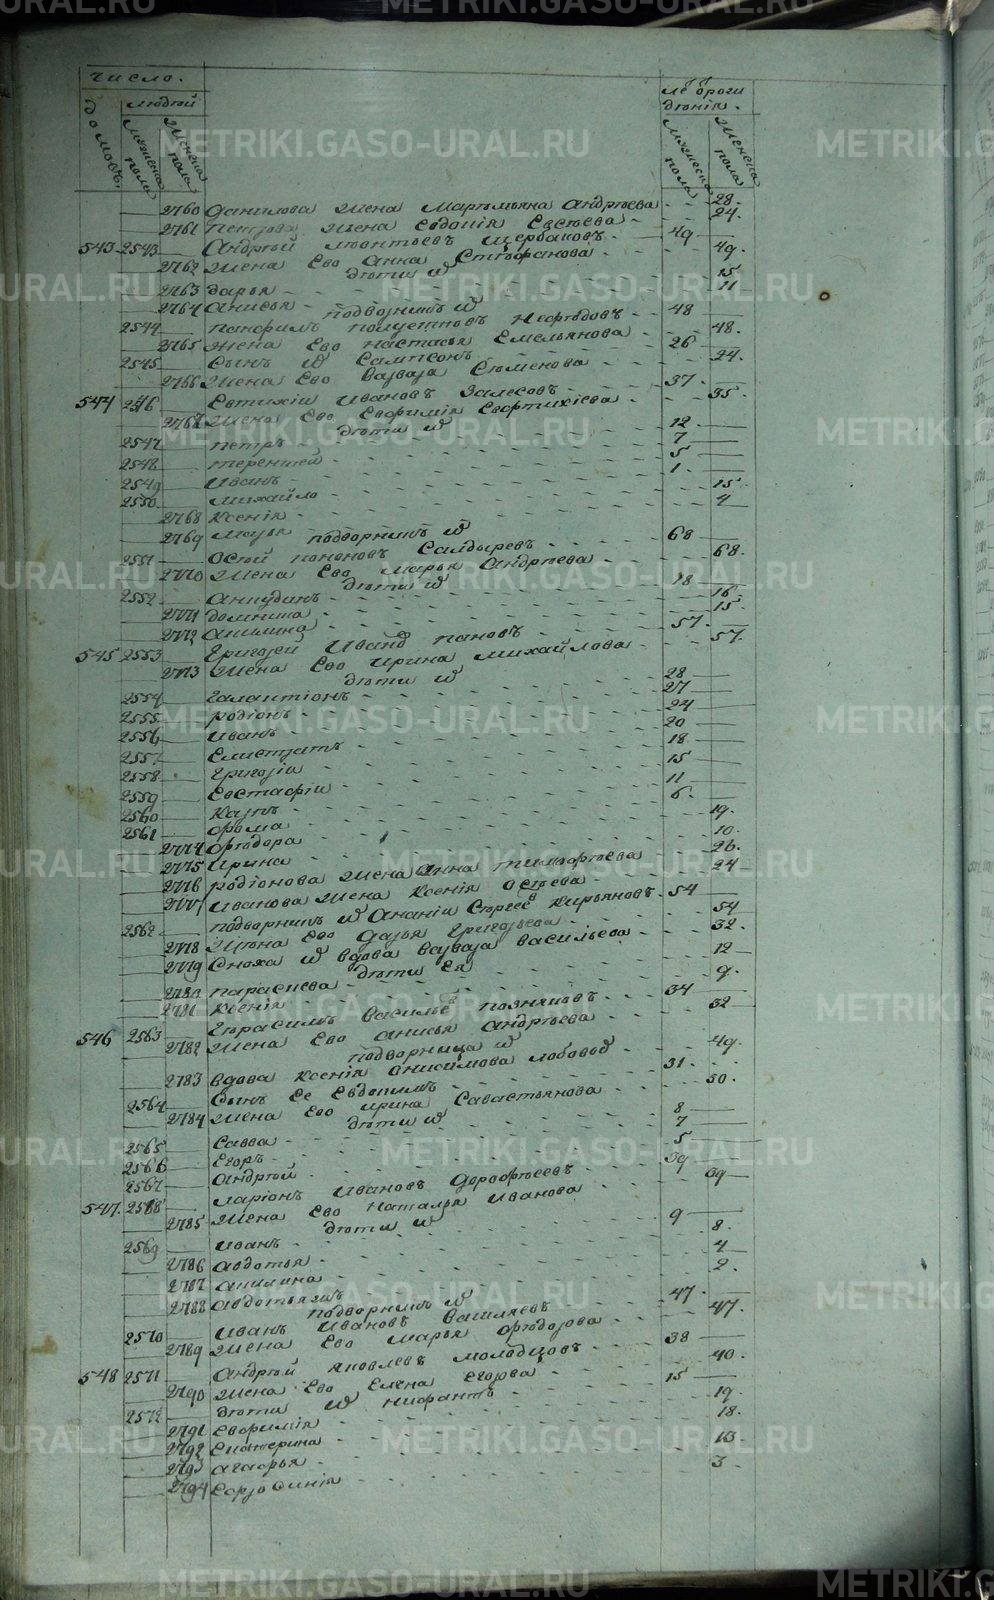 METRIKI.GASO-URAL.RU
число.
людей
домовъ.
мужеска пола
женска пола
лѣ ѿ роги
дѣнїя.
мужеска пола
женска пола
2760 данилова жена Маремьяна андрѣева - - 28.
2761 петрова жена Евдокїя Евсѣева - 24.
543 2543 Андрѣй леонтьевъ щербаковъ - 49
2762 жена Ево анна Стефанова - - 49.
дѣти и҆хъ
2763 дарья - - 15
2764 анисья - - 11
подворникъ и҆хъ
2544 панфилъ полуетковъ Нефедовъ - 48
2765 жена Ево настасья Емельянова - - 48.
2545 Сынъ и҆хъ Сампсонъ - - 26
2766 жена Ево варвара Семенова - - 24.
544 2546 Евтихїи ивановъ Залесовъ - - 37
2767 жена Ево Евфимїя Евтихїева - 35.
дѣти и҆хъ
2547 петръ - - 12
2548 терентей - - 7
2549 иванъ - - 5
2550 михайло - - 1
2768 ксенїя - - 15
2769 марья - - 4
подворникъ и҆хъ
2551 Осѣй кононовъ Салдыревъ - - 68
2770 жена Ево марья андрѣева - - 68.
дѣти и҆хъ
2552 анкудинъ - - 18
2771 домника - - 16
2772 акилина - - 15
545 2553 григорей Иванъ пановъ - - 57
2773 жена Ево ирина михайлова - - 57.
дѣти и҆хъ
2554 галактїонъ - - 28
2555 родїонъ - - 27
2556 иванъ - - 24
2557 Елистратъ - - 20
2558 григорїи - - 18
2559 Евстафїи - - 15
2560 карпъ - - 11
2561 фома - - 6
2774 фѣдора - - 19.
2775 ирина - - 10.
2776 родїонова жена анна тимофѣева - 26
2777 иванова жена ксенїя осѣева - - 24
2562 подворникъ и҆хъ Ананїи Сергеевъ кирьяновъ - 54
2778 жена Ево дарья григорьева - - 54
2779 Сноха и҆хъ вдова варвара васильева - 32.
дѣти Ея
2780 парасковья - - 12
2781 ксенїя - - 9
546 2563 герасимъ васильевъ позняковъ - 34
2782 жена Ево анисья андрѣева - - 32
подворница и҆хъ
2783 вдова ксенїя анисимова - 49.
2564 Сынъ Ее Евдокимъ - - 31
2784 жена Ево ирина Савастьянова - - 30.
дѣти и҆хъ
2565 Савва - - 8
2566 Егоръ - - 7
2567 андрѣй - - 5
547. 2568 ларїонъ ивановъ дорофеевъ - 39
2785 жена Ево наталья иванова - - 39
дѣти и҆хъ
2569 иванъ - - 9
2786 авдотья - - 8.
2787 акилина - - 4
2788 авдотья - - 2.
подворникъ и҆хъ
2570 иванъ ивановъ - 47
2789 жена Ево марья фѣдорова - - 47.
548 2571 андрѣй яковлевъ молодцовъ - - 38
2790 жена Ево Елена Егорова - - 40.
2572 дѣти и҆хъ никфантъ - - 15
2791 Евфимїя - - 19
2792 Екатерина - - 18.
2793 агафья - - 13.
2794 - - 3